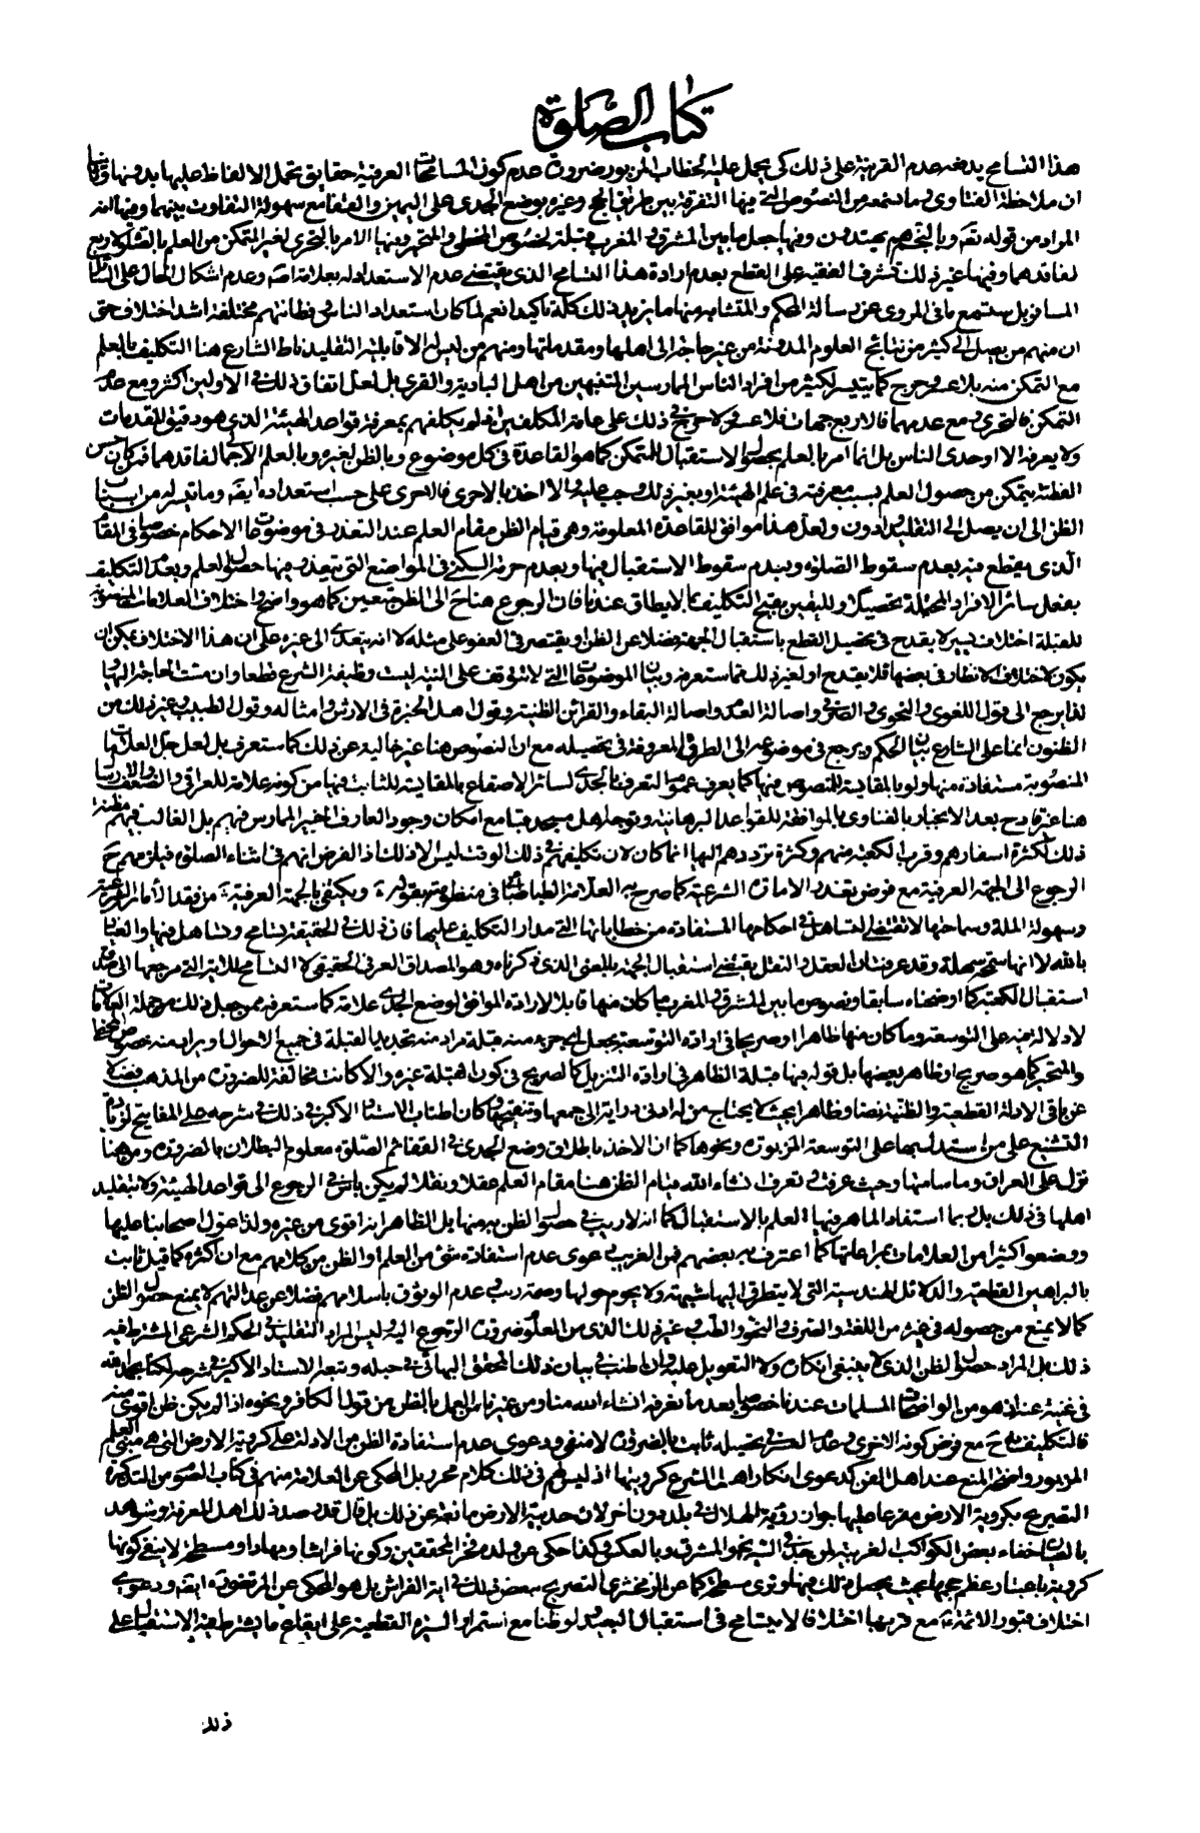 كتاب الصلوة
هذا التسامح يدفعه عدم القرينة على ذلك كى يحمل عليه الخطاب المزبور ضرورة عدم كون المسامحات العرفية حقايق تحمل الالفاظ عليها بدونها
ان ملاحظة الفتاوى وما تسمعه من النصوص التى فيها التفرقة بين طريق الحج وغيره بوضع الجدى على اليمين والقفا مع سهولة التفاوت بينهما وفيها انه
المراد من قوله تعالى وبالنجم هم يهتدون وفيها جعل ما بين المشرق والمغرب قبلة لخصوص المخطى والمتحير وفيها الامر بالتحرى لغير المتمكن من العلم بالصلوة لاربع
لفاقدهما وفيها غير ذلك تشرف الفقيه على القطع بعدم ارادة هذا التسامح الذى يقتضى عدم الاستعداد له بعلامة خاصة وعدم اشكال الحال على
المسافر بل ستسمع ما فى المروى عن رسالة المحكم والمتشابه ومنها ما يزيد ذلك كله تاكيدا نعم لما كان استعداد الناس وفطانتهم مختلفة اشد اختلاف حتى
ان منهم من يصل الى كثير من نتائج العلوم المدونة من غير حاجة الى اهلها ومقدماتها ومنهم من ليس له الا قابلية التقليد ناط الشارع هنا التكليف بالعلم
مع التمكن منه بلا عسر وحرج كما يتيسر لكثير من افراد الناس الممارسين المتنبهين من اهل البادية والقرى بل لعل اتفاق ذلك فى الاولين اكثر ومع عدم
التمكن فالتحرى ومع عدمهما فالاربع جهات فلا عسر ولا حرج فى ذلك على عامة المكلفين اذ لم يكلفهم بمعرفة قواعد الهيئة الذى هو دقيق المقدمات
ولا يعرفه الا اوحدى الناس بل انما امر بالعلم بحصول الاستقبال للمتمكن كما هو القاعدة فى كل موضوع وبالظن لغيره وبالعلم الاجمالى لفاقدهما فمن كان
الفطنة يتمكن من حصول العلم بسبب معرفته فى علم الهيئة او بغير ذلك وجب عليه والا اخذ بالاحرى فالاحرى على حسب استعداده ايضا وما تيسر له من اسباب
الظن الى ان يصل الى التقليد او دون ولعل هذا موافق للقاعدة المعلومة وهى قيام الظن مقام العلم عند التعذر فى موضوعات الاحكام خصوصا فى المقام
الذى يقطع فيه بعدم سقوط الصلوة وبعدم سقوط الاستقبال فيها وبعدم حرمة السكنى فى المواضع التى يتعذر فيها حصول العلم وبعدم التكليف
بفعل سائر الافراد المحتملة تحصيلا لليقين بقبح التكليف بما لا يطاق عندنا فان الرجوع هنا ح الى الظن متعين كما هو واضح واختلاف العلامات المنصوبة
للقبلة اختلاف يسير لا يقدح فى تحصيل القطع باستقبال الجهة فضلا عن الظن او يقتصر فى العفو على مثله لا انه يتعدى الى غيره على ان هذا الاختلاف يمكن ان
يكون لاختلاف الانظار فى بعضها فلا يقدح او لغير ذلك مما ستعرفه وبيان الموضوعات التى لا تتوقف على النية ليست وظيفة الشرع قطعا وان مست الحاجة اليها
لذا يرجع الى قول اللغوى والنحوى والصرفى واصالة العدم واصالة البقاء والقرائن الظنية وقول اهل الخبرة فى الارش وامثاله وقول الطبيب وغير ذلك من
الظنون انما على الشارع بيان الحكم ويرجع فى موضوعه الى الطرق المعروفة فى تحصيله مع ان النصوص هنا غير خالية عن ذلك كما ستعرف بل لعل جل العلامات
المنصوبة مستفادة منها ولو بالمقايسة للنصوص منها كما يعرف عموم التعرف بالجدى لسائر الاصقاع بالمقايسة للثابت فيها من كونه علامة للعراقى والضعف
هنا غير قادح بعد الانجبار بالفتاوى بالموافقة للقواعد البرهانية وتوجه اهل مسجد قبا مع امكان وجود العارف الخبير الممارس فيهم بل الغالب فيهم
ذلك لكثرة اسفارهم وقرب الكعبة منهم وكثرة ترددهم اليها انما كان لان تكليفهم فى ذلك الوقت ليس الا ذلك اذ الفرض انهم فى اثناء الصلوة فيلزمهم ح
الرجوع الى الجهة العرفية مع فرض تعذر الامارة الشرعية كما صرح به العلامة الطباطبائى فى منظومته بقوله ويكتفى بالجهة العرفية من فقد الامارة الشرعية
وسهولة الملة وسماحتها لا تقتضى التساهل فى احكامها المستفادة من خطاباتها التى مدار التكليف عليها فان ذلك فى الحقيقة تسامح وتساهل فيها والعياذ
بالله لا انها سمحة سهلة وقد عرفت ان العقل والنقل يقتضى استقبال الجهة بالمعنى الذى ذكرناه وهو المصداق العرفى الحقيقى لا التسامحى للاية التى مرجعها الى
استقبال الكعبة كما اوضحناه سابقا ونصوص ما بين المشرق والمغرب ما كان منها قابلا لارادة الموافق لوضع الجدى علامة كما ستعرفه ممن جعل ذلك من جملة العلامات
لا دلالة فيه على التوسعة وما كان منها ظاهرا او صريحا فى ارادة التوسعة بجعل اى جزء منه قبلة مراد منه تحديد القبلة فى جميع الاحوال او يراد منه خصوص المخطى
والمتحير كما هو صريح او ظاهر بعضها بل قوله فيها قبلة الظاهر فى ارادة التنزيل كالصريح فى كون القبلة غيره والا كانت مخالفة للضرورة من المذهب فضلا
عن باقى الادلة القطعية والظنية نصا وظاهرا بحيث لا يحتاج من له ادنى دراية الى جمعها وتنقيحها وكان اطناب الاستاد الاكبر فى ذلك فى شرحه على المفاتيح لزيادة
التشنيع على من استدل بها على التوسعة المزبورة ونحوها كما ان الاخذ باطلاق وضع الجدى فى القفا ثم الصلوة معلوم البطلان بالضرورة ومن هنا
نزل على العراق وما سامتها وحيث عرفت وتعرف انشاء الله قيام الظن هنا مقام العلم عقلا ونقلا لم يكن باس فى الرجوع الى قواعد الهيئة ولا بتقليد
اهلها فى ذلك بل ربما استفاد الماهر فيها العلم بالاستقبال كما انه لا ريب فى حصول الظن به منها بل الظاهر انه اقوى من غيره ولذا عول اصحابنا عليها
ووضعوا كثيرا من العلامات بمراعاتها كما اعترف به بعضهم فمن الغريب دعوى عدم استفادة شئ من العلم او الظن من كلامهم مع ان اكثره كما قيل ثابت
بالبراهين القطعية والدلائل الهندسية التى لا يتطرق اليها شبهة ولا يحوم حولها وصمة ريب وعدم الوثوق باسلامهم فضلا عن عدالتهم لا يمنع حصول الظن
كما لا يمنع من حصوله فى غيره من اللغة والصرف والنحو والطب وغير ذلك الذى من المعلوم ضرورة الرجوع اليه وليس المراد التقليد فى الحكم الشرعى المشترط فيه
ذلك بل المراد حصول الظن الذى لا ينبغى انكاره ولا التعويل عليه وان اطنب فى بيان ذلك المحقق البهائى فى حبله وتبعه الاستاد الاكبر فى شرحه لكنا بحمد الله
فى غنية عنه اذ هو من الواضحات المسلمات عندنا خصوصا بعد ما تعرفه انشاء الله منا ومن غيرنا من العمل بالظن من قول الكافر ونحوه اذا لم يكن ظن اقوى منه
فالتكليف به ح مع فرض كونه الاحرى وعدم العسر فى تحصيله ثابت بالضرورة لا منفى ودعوى عدم استفادة الظن من الادلة على كروية الارض التى هى مبنى العلم
المزبور واضحة المنع عند اهل الفن كدعوى انكار اهل الشرع كرويتها اذ ليس لهم فى ذلك كلام محرر بل المحكى عن العلامة منهم فى كتاب الصوم من التذكرة
التصريح بكروية الارض مفرعا عليها جواز رؤية الهلال فى بلد دون اخر لان حدبة الارض مانعة عن ذلك بل قال قد رصد ذلك اهل المعرفة وشوهد
بالعيان خفاء بعض الكواكب الغربية لمن جد فى السير نحو المشرق وبالعكس وكذا حكى عن ولده فخر المحققين وكونها فراشا ومهادا ومسطحة لا ينفى كونها
كروية باعتبار عظم حجمها بحيث يحصل ذلك فيها وترى مسطحة كما عن الزمخشرى التصريح ببعض ذلك فى اية الفراش بل هو المحكى عن المرتضى ره ايضا ودعوى
اختلاف قبور الائمة ع مع قربها اختلافا لا يتسامح فى استقبال البعيد لو ظنا مع استمرار السيرة القطعية على ايقاع ما يشترط فيه الاستقبال على
ذلك